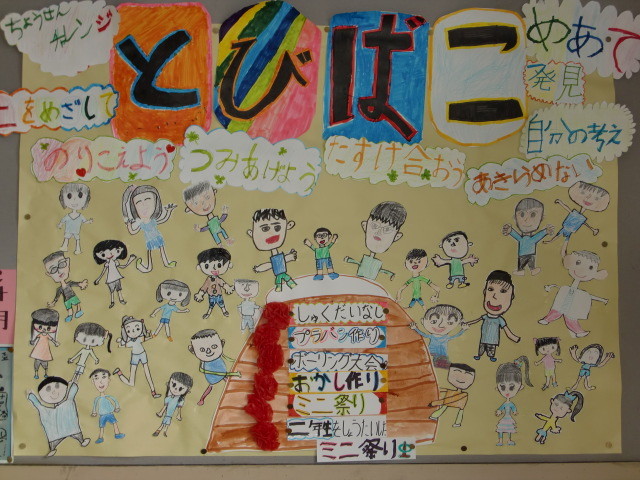 ちょうせん
チャレンジ
とびばこ
めあて
発見
自分の考え
をめざして
のりこえよう
つみあげよう
たすけ合おう
あきらめない
しゅくだいなし
プラバン作り
ボーリング大会
おかし作り
ミニ祭り
二年生をしょうたいし
ミニ祭り
月